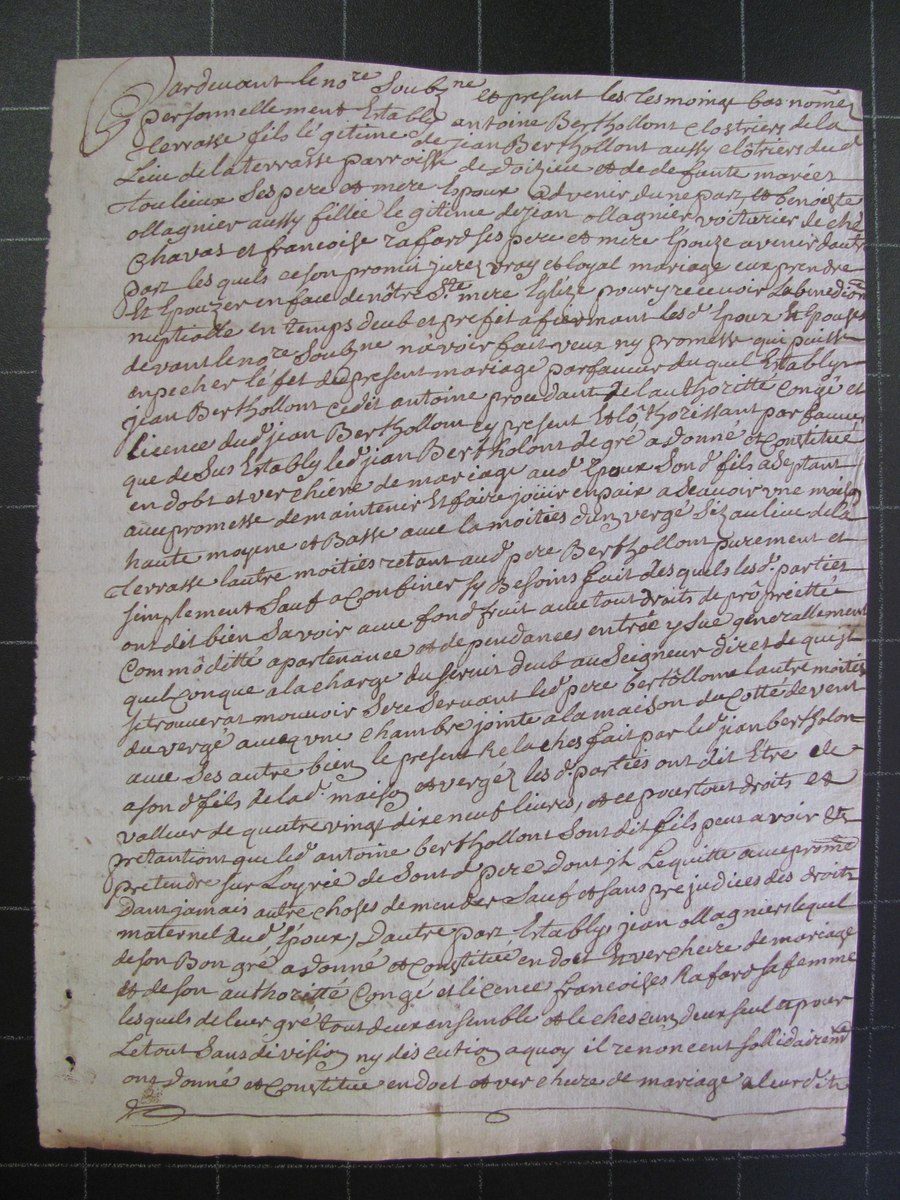 Pardevant le no.re Soub.ne et present les tesmoings bas nomée
personnellement Estably antoine Berthollont Clostriers de la
terrasse fils légitime de jean Berthollont aussy clôtriers dud.
Lieu de la terrasse parroisse de doizieu et de defaute mariée
toulieux Ses pere et mere Epoux advenir dune part et benoiste
ollagnier aussy fillie legitime de jean ollagnier voiturier de ché
Chavas et francoise rafard ses pere et mere Epouze avenir dautre
part les quels ce son promis jurez vray et loyal mariage eux prendre
Et Epouzer en face de nôtre Ste mere Eglize pour y recevoir La benedion
nuptialle en temps deub et prefet afiermant lesd. Epoux Et Epouse
devant le nore Soub.ne n'avoir fait veux ny promesse qui puisse
enpecher léfet du present mariage par faveur du quel Estably
jean Berthollont cedit antoine procedant de lauthoritté Congé et
licence dud. jean Berthollont cy present Et lothorissant par faveur
que de Sus Estably led. jean Bertholont de gré a donné et Constitué
en dobt et verchiere de mariage aud. Epoux Son d. fils aseptant
avec promesse de maintenir Et faire joüir en paix a Seavoir vne maison
haute moyene et Basse avec la moities dun vergé Siz au lieu de la
terrasse lautre moities retant aud. pere Berthollont purement et
simplement Sauf a Confiner Sy Besoins fait des quels lesd. parties
ont dit bien Savoir avec fond fruit avec tout droits de proprietté
Commôditté apartenance et dependances entrée ysue generallement
quelconque a la charge du servis deub au Seigneur direct de qui jl
se trouverat mouvoir Se reServant led. pere bertôllont lautre moities
du vergé avec vne chambre jointe a la maison du Cotté de vent
avec Ses autre bien le present Relaches fait par led. jean bertholon
a son d. fils de lad. maison et vergez lesd. parties ont dit Etre de
valleur de quatre vingt dixe neuf livres, et ce pour tout droits et
prétantions que led. antoine berthollont Son dit fils peut avoir et
pretendre sur Loyrie de Sont d. pere Dont jl Le quitte avec promesse
Dans jamais autre choses demender Sauf et sans prejudices des droits
maternel dud. Epoux, Dautre part Estably jean ollagnier lequel
de son Bon gré a donné et Constitué en doct Et vercheire de mariage
et de son authoritté Congé et licence francoises Rafard sa femme
lesquels de leur gré tout deux ensemble et le chescun deux seul et pour
Le tout Sans division ny discution a quoy il renoncent sollidairemt
ont donné et Constitue en doct et vercheire de mariage a leur dite